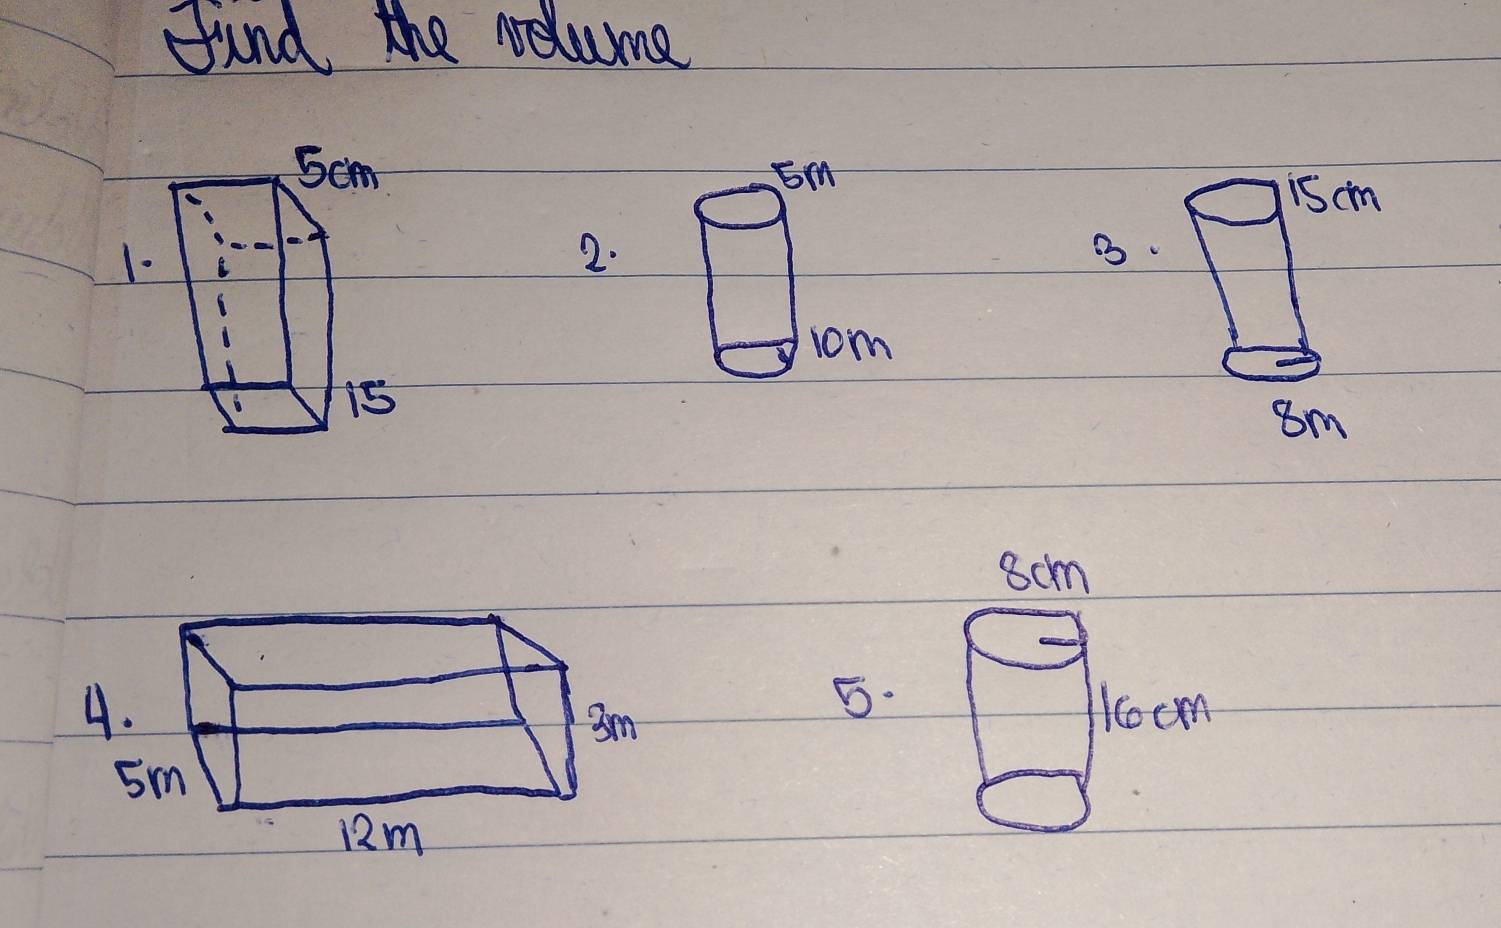 Find the volume
1. 5cm 15
2. 5m 10m
3. 15cm 8m
4. 5m 12m 3m
5. 8cm 16cm